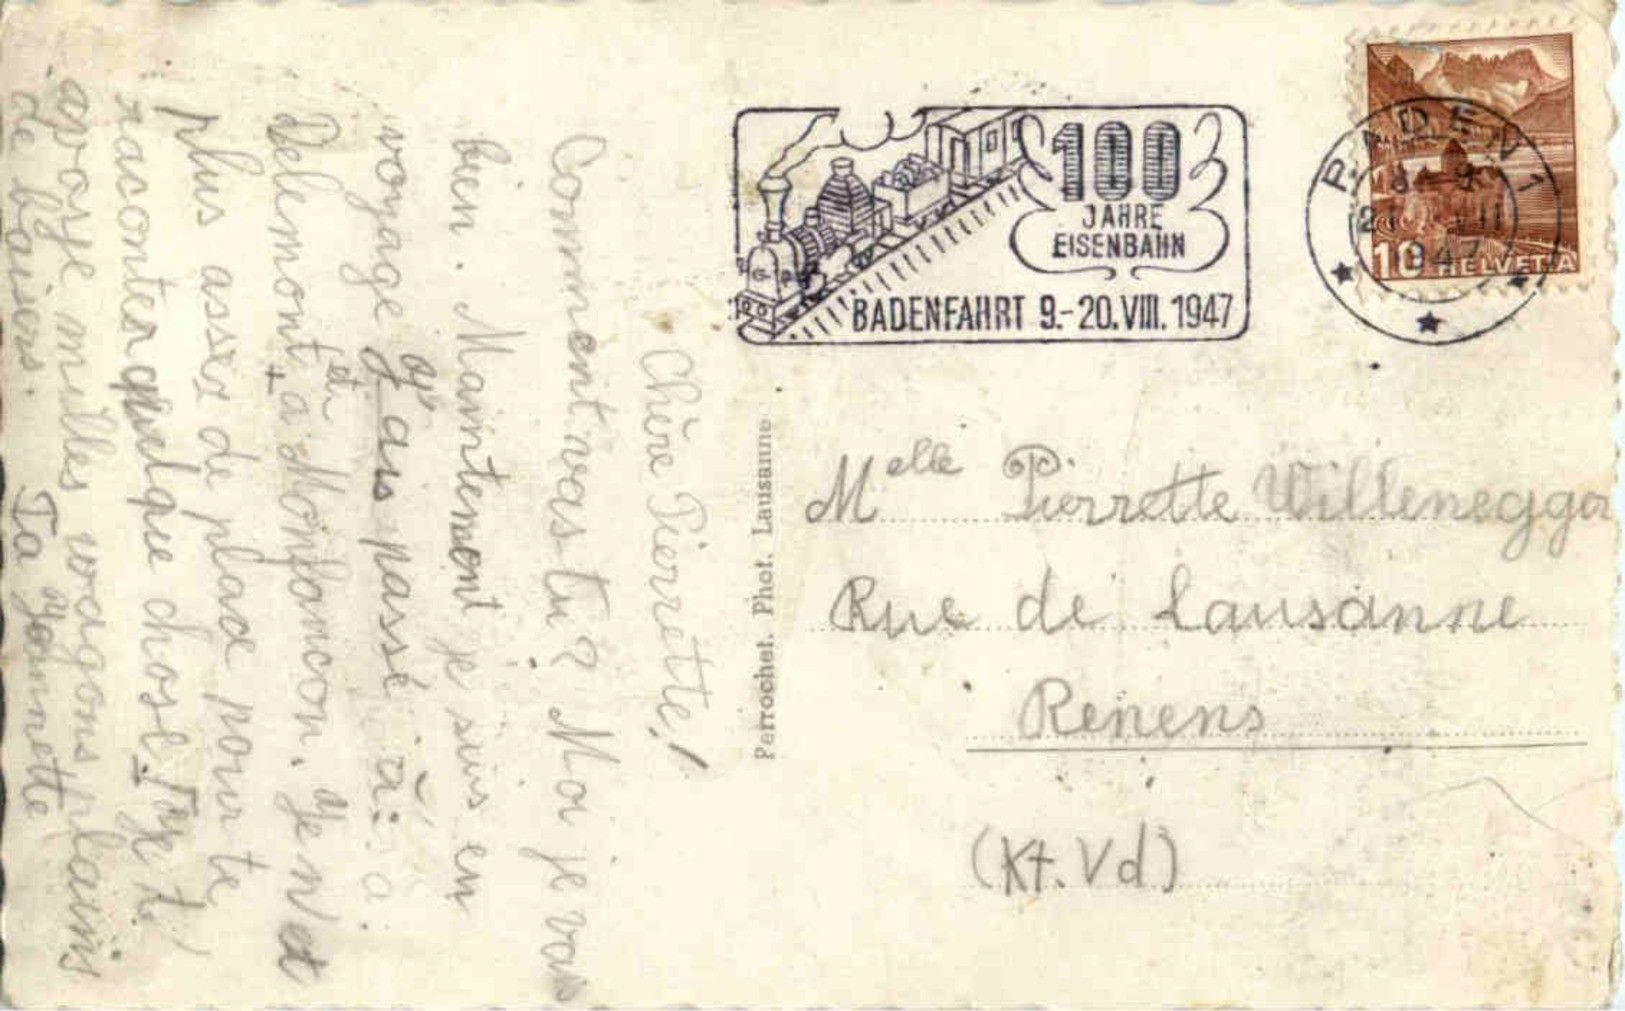 Chère Pierrette!
Comment vas-tu? Moi je vais
bien. Maintenent je suis en
voyage. J'ais passé à:
Delemont et à Monfancon. Je n'et
plus assez de place pour te
raconter quelque chose. Je t'
avoye milles wagons plains
de baisers. Ta Jeannette
Perrochet. Phot. Lausanne
100
JAHRE
EISENBAHN
BADENFAHRT 9.-20.VIII.1947
BADEN 1
1947
10 HELVETIA
Melle Pierrette Willenegger
Rue de Lausanne
Renens
(Kt. Vd)